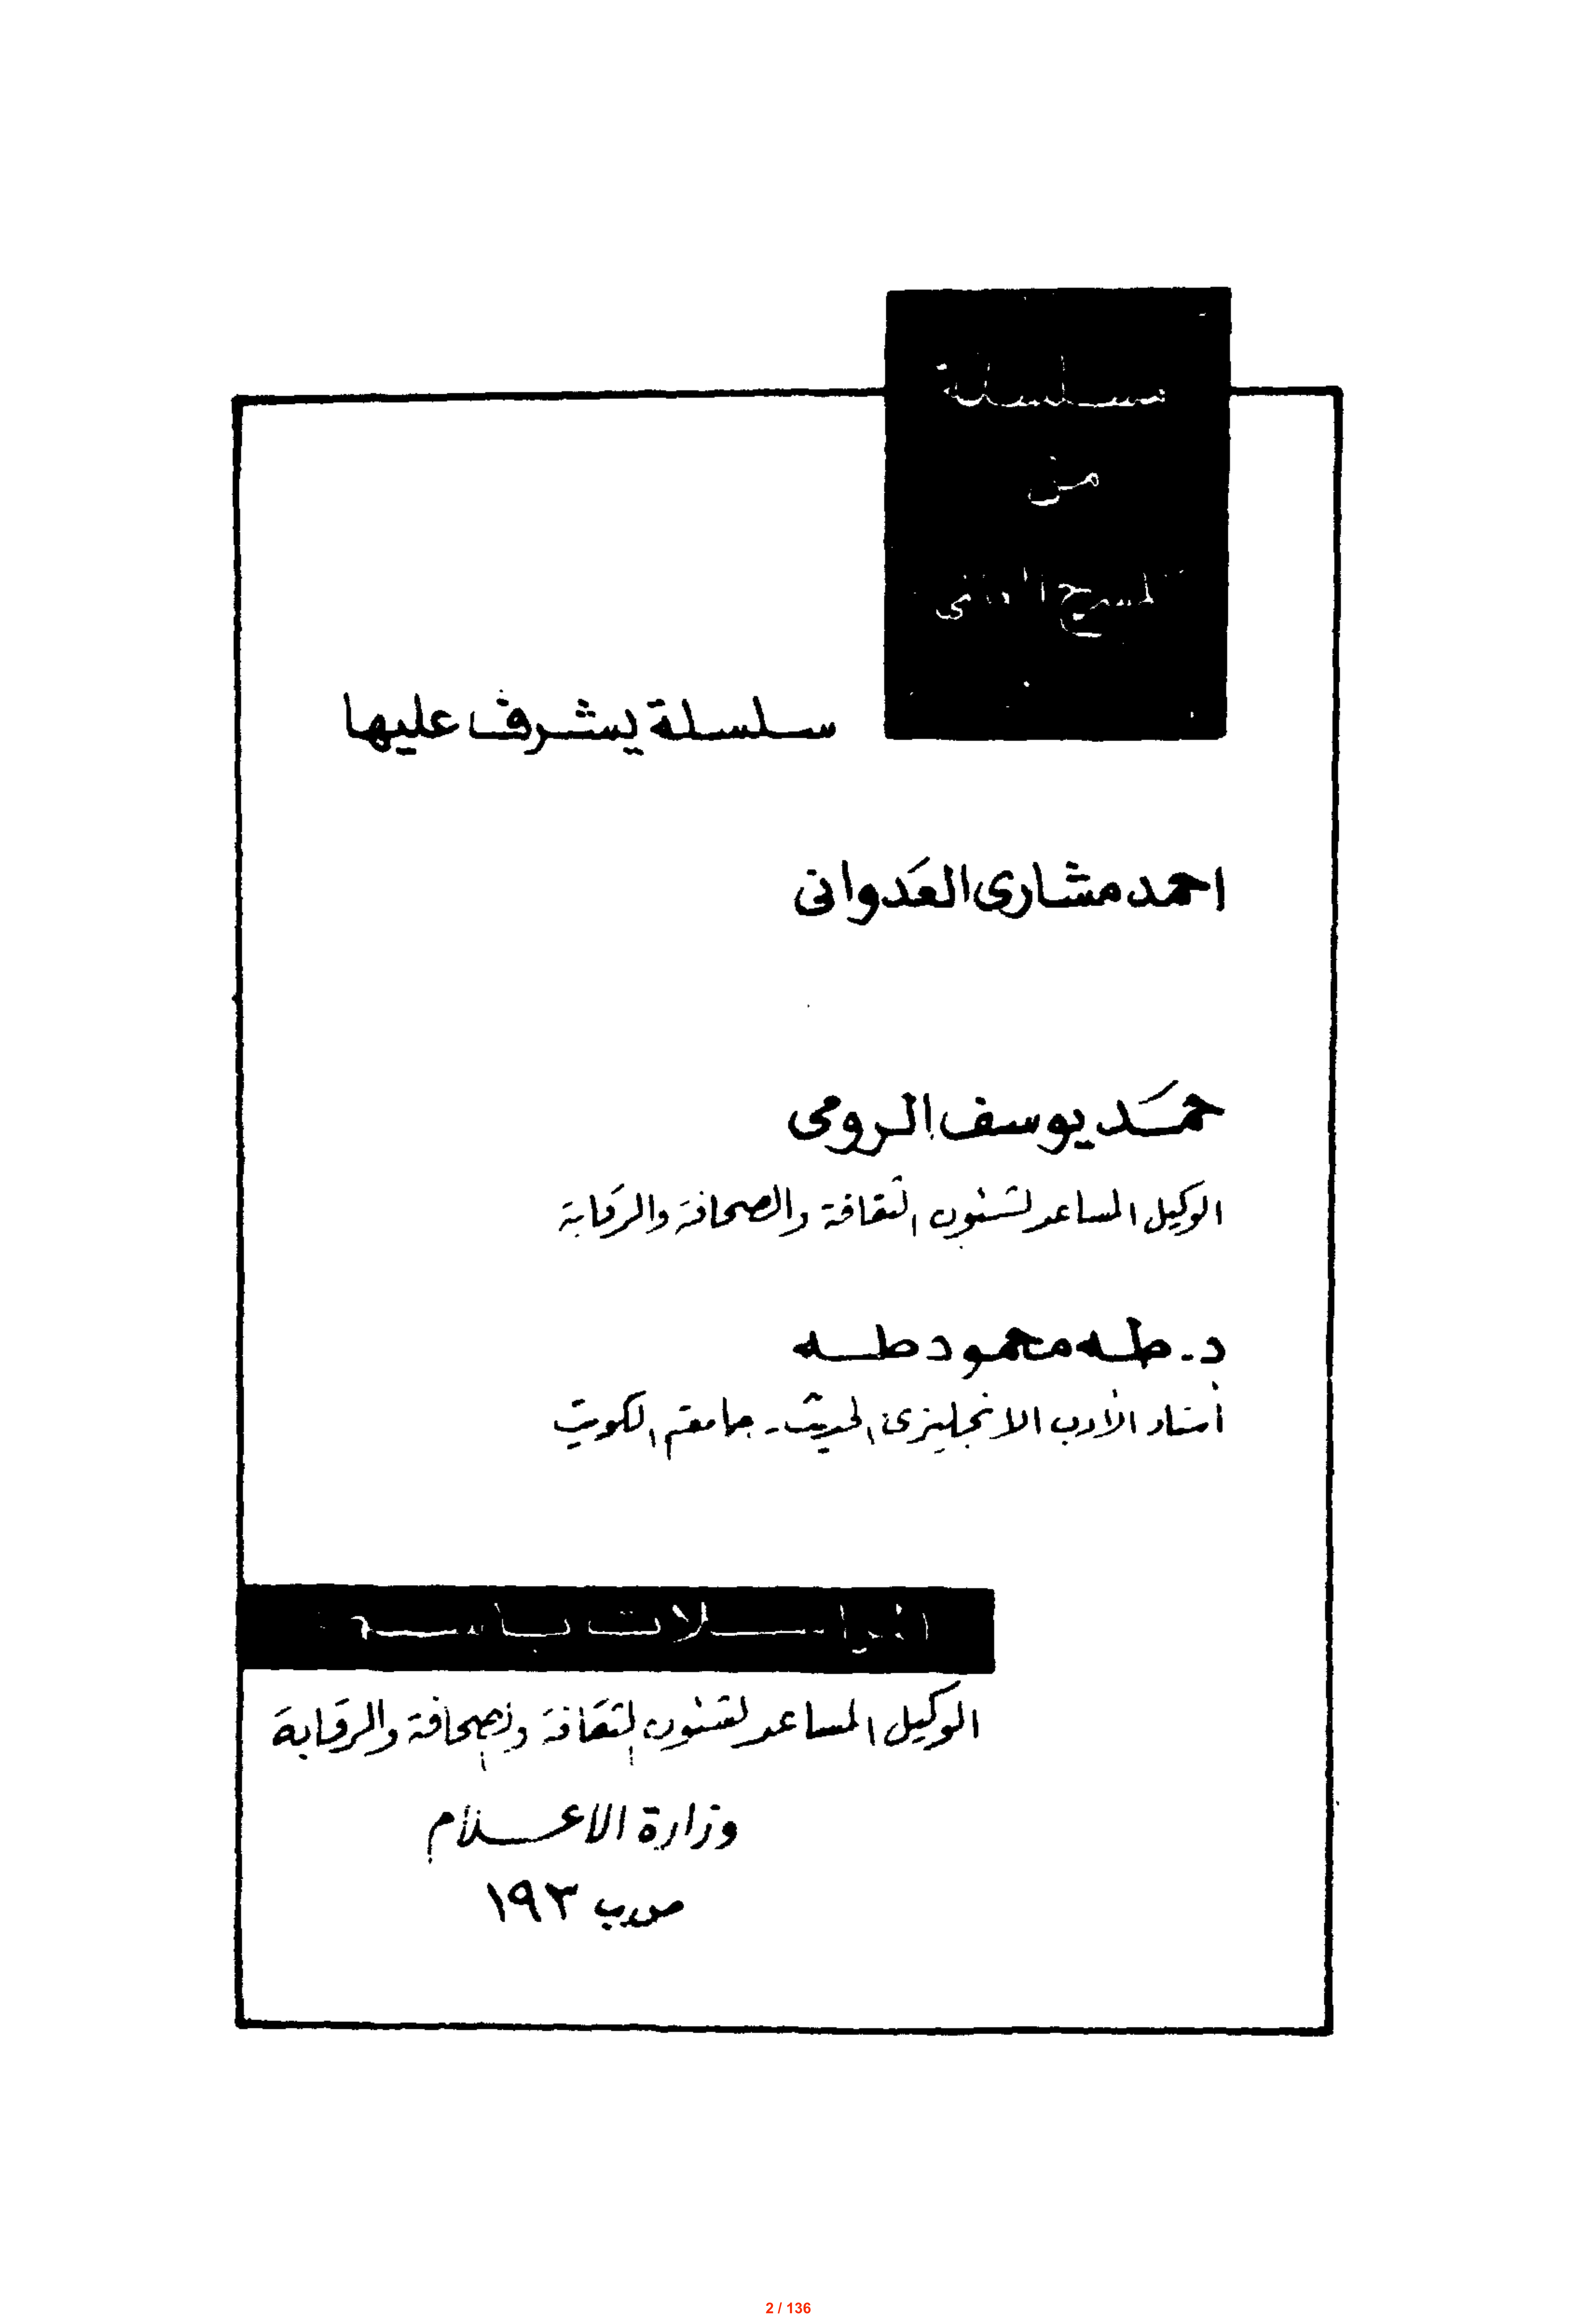 سلسلة
من
المسرح العالمى
سلسلة يشرف عليها
احمد مشارى العدوانى
حمد يوسف الرومى
الوكيل المساعد لشئون الثقافة والصحافة والرقابة
د. طه محمود طه
أستاذ الأدب الانجليزى الحديث - جامعة الكويت
المراسلات باسم
الوكيل المساعد لشئون الثقافة والصحافة والرقابة
وزارة الاعلام
ص.ب ١٩٣
2 / 136